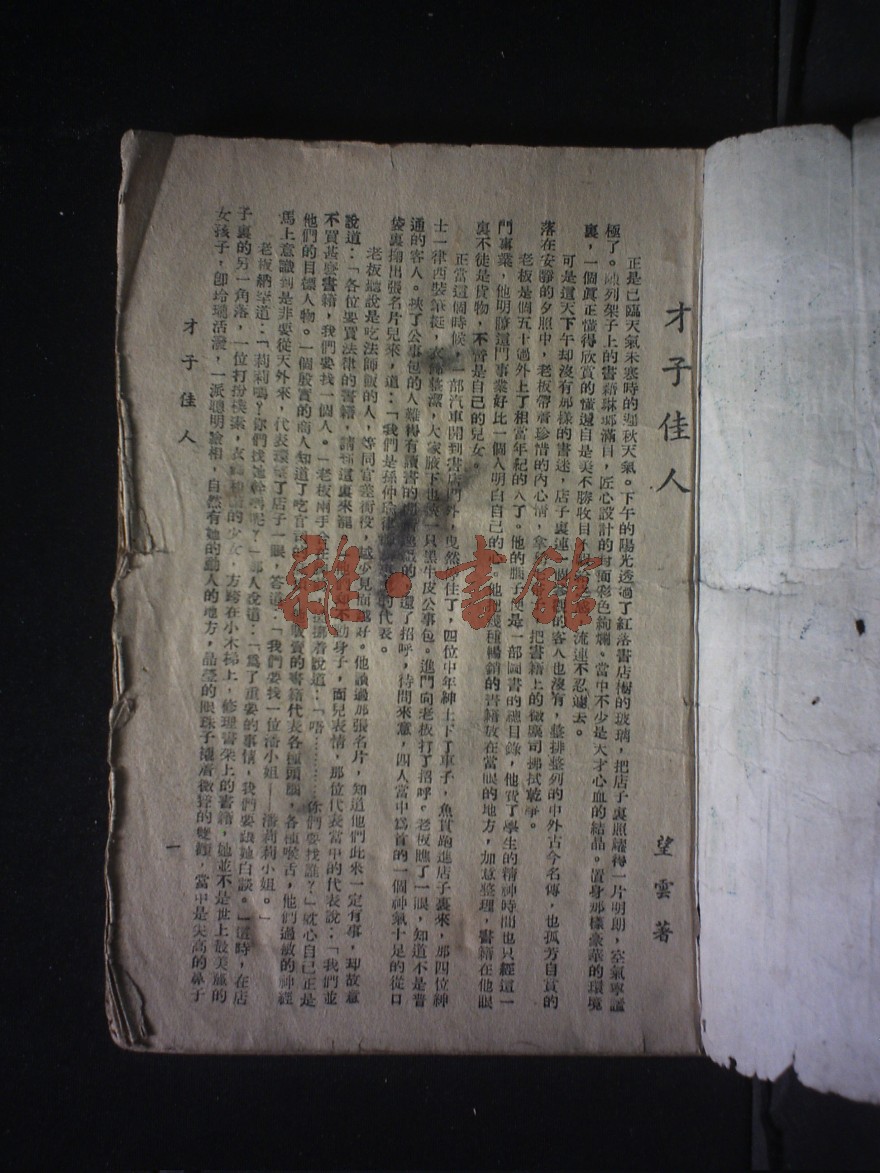 才子佳人
望雲著
正是已臨天氣未寒時的暮秋天氣。下午的陽光透過了紅落書店櫥的玻璃，把店子裏照耀得一片明朗，空氣寧謐
極了。陳列架子上的書籍琳瑯滿目，匠心設計的封面彩色絢爛。當中不少是天才心血的結晶。置身那樣豪華的環境
裏，一個眞正懂得欣賞的懂還自是美不勝收目 流連不忍遽去。
可是這天下午却沒有那樣的書迷，店子裏連一個 的客人也沒有，整排整列的中外古今名傳，也孤芳自賞的
落在安靜的夕照中，老板帶着珍惜的內心情，拿 把書籍上的微塵司拂拭乾爭。
老板是個五十過外上了相當年紀的人了。他的腦子便是一部圖書的總目錄，他費了學生的精神時間也只經這一
門事業，他明瞭這門事業好比一個人明白自己的 他把幾種暢銷的書籍放在當眼的地方，加意整理，書籍在他眼
裏不徒是貨物，不啻是自己的兒女。
正當這個時候，一部汽車開到書店門外，戛然 住了，四位中年紳士下了車子，魚貫跑進店子裏來，那四位紳
士一律西裝筆挺，衣飾整潔，大家腋下也挾一只黑牛皮公事包。進門向老板打了招呼。老板瞧了一眼，知道不是普
通的客人。挾了公事包的人難得有讀書的 還了招呼，待問來意，四人當中爲首的一個神氣十足的從口
袋裏掏出張名片兒來，道：「我們是孫仲 律師事 的代表。
老板聽說是吃法師飯的人，等同官差衙役，越少見面越好。他讀過那張名片，知道他們此來一定有事，却故意
說道：「各位要買法律的書籍，請到這裏來罷。」 不動身子，面兒表情，那位代表當中的代表說：「我們並
不買甚麼書籍，我們要找一個人。」老板兩手合在 着說道：「唔…………你們要找誰？」就心自己正是
他們的目標人物。一個殷實的商人知道了吃官司的 販賣的書籍代表各種頭腦，各種喉舌，他們過敏的神經
馬上意識到是非要從天外來，代表環顧了店子一眼，答道：「我們要找一位潘小姐——潘莉莉小姐。」
老板納罕道：「莉莉嗎？你們找她幹嗎呢？」那人說道：「爲了重要的事情，我們要跟她白談。」這時，在店
子裏的另一角落，一位打扮樸素，衣 的少女，方跨在小木梯上，修理書架上的書籍，她並不是世上最美麗的
女孩子，卽玲瓏活潑，一派聰明臉相，自然有她的動人的地方，晶瑩的眼珠子襯着微聳的雙顴，當中是尖高的鼻子
才子佳人
一
雜·書館